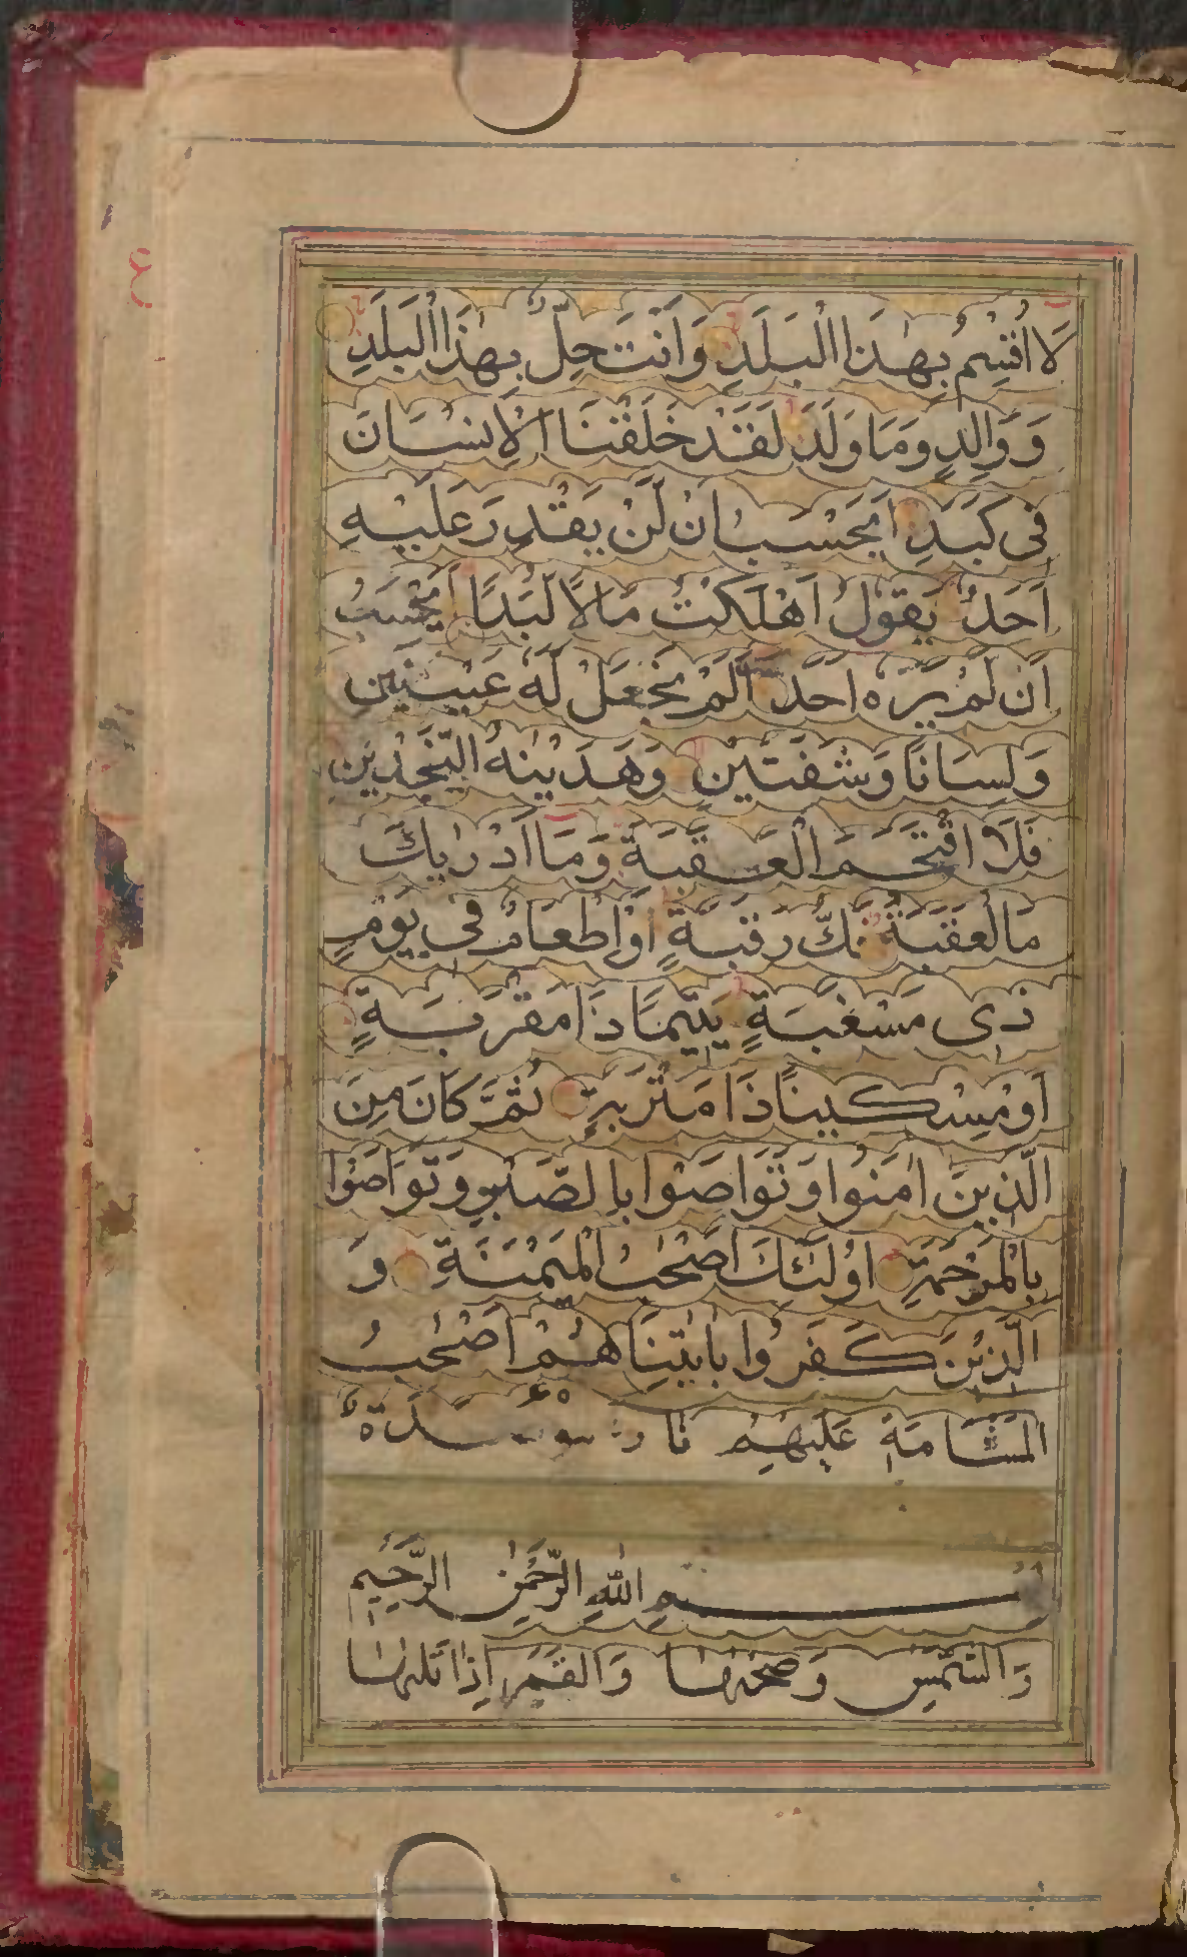 لَا اُقْسِمُ بِهٰذَا الْبَلَدِ وَاَنْتَ حِلٌّ بِهٰذَا الْبَلَدِ
وَوَالِدٍ وَمَا وَلَدَ لَقَدْ خَلَقْنَا الْاِنْسَانَ
فِى كَبَدٍ اَيَحْسَبُ اَنْ لَنْ يَقْدِرَ عَلَيْهِ
اَحَدٌ يَقُولُ اَهْلَكْتُ مَالًا لُبَدًا اَيَحْسَبُ
اَنْ لَمْ يَرَهُ اَحَدٌ اَلَمْ نَجْعَلْ لَهُ عَيْنَيْنِ
وَلِسَانًا وَشَفَتَيْنِ وَهَدَيْنٰهُ النَّجْدَيْنِ
فَلَا اقْتَحَمَ الْعَقَبَةَ وَمَا اَدْرٰيكَ
مَالْعَقَبَةُ فَكُّ رَقَبَةٍ اَوْ اِطْعَامٌ فِى يَوْمٍ
ذِى مَسْغَبَةٍ يَتِيمًا ذَا مَقْرَبَةٍ
اَوْ مِسْكِينًا ذَا مَتْرَبَةٍ ثُمَّ كَانَ مِنَ
الَّذِينَ اٰمَنُوا وَتَوَاصَوْا بِالصَّبْرِ وَتَوَاصَوْا
بِالْمَرْحَمَةِ اُولٰئِكَ اَصْحٰبُ الْمَيْمَنَةِ وَ
الَّذِينَ كَفَرُوا بِاٰيٰتِنَا هُمْ اَصْحٰبُ
الْمَشْاَمَةِ عَلَيْهِمْ نَارٌ مُؤْصَدَةٌ
بِسْمِ اللّٰهِ الرَّحْمٰنِ الرَّحِيمِ
وَالشَّمْسِ وَضُحٰيهَا وَالْقَمَرِ اِذَا تَلٰيهَا